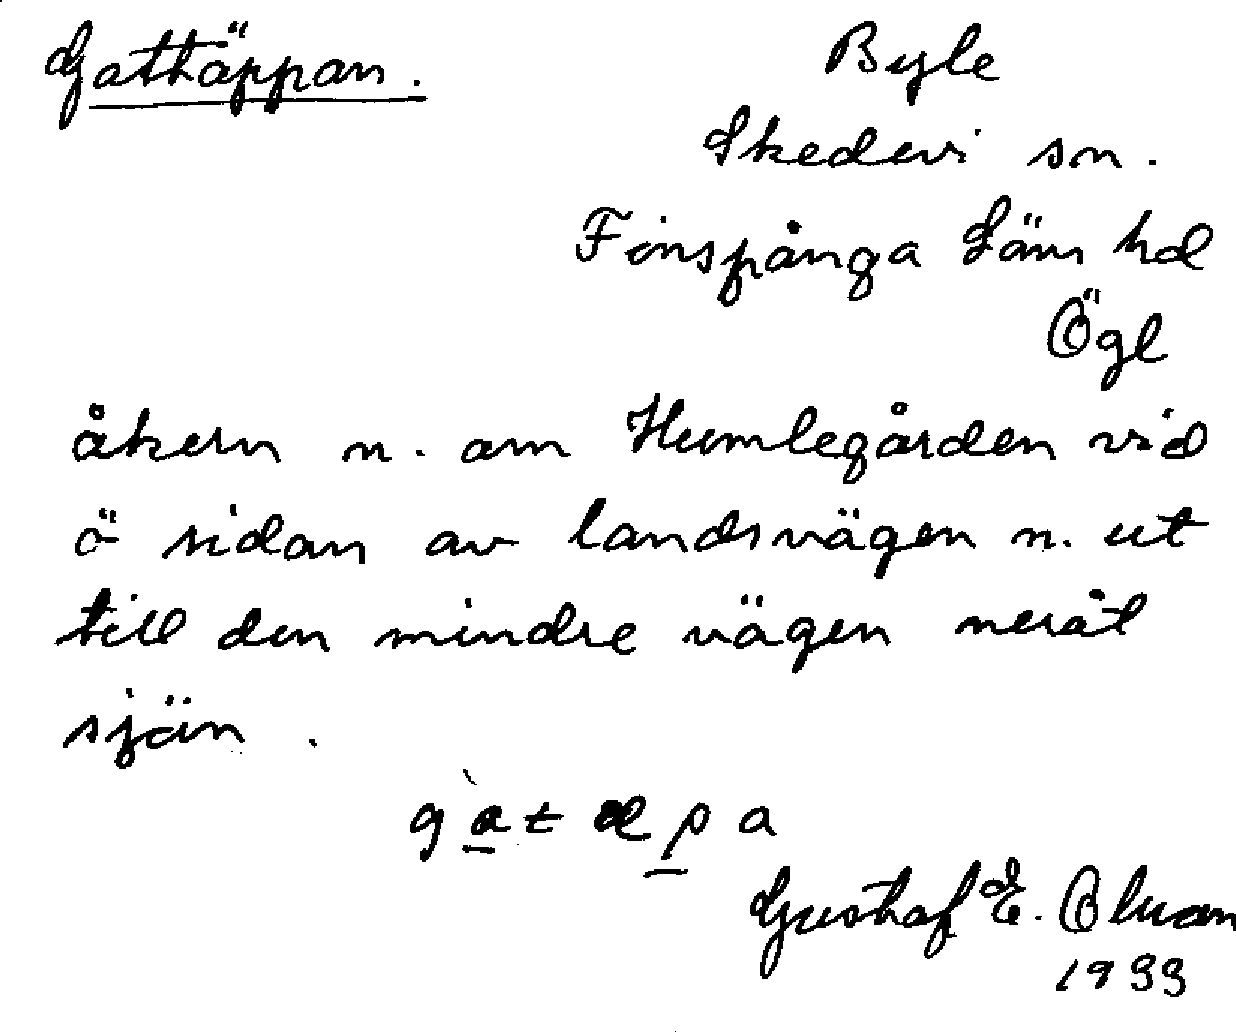 Gatkäppan.
Byle
Skedevi sn.
Finspånga Läns hd
Ögl
åkern n. om Humlegården vid
ö sidan av landsvägen n. ut
till den mindre vägen neråt
sjön.
gàt æpa
Gustaf E.
1933